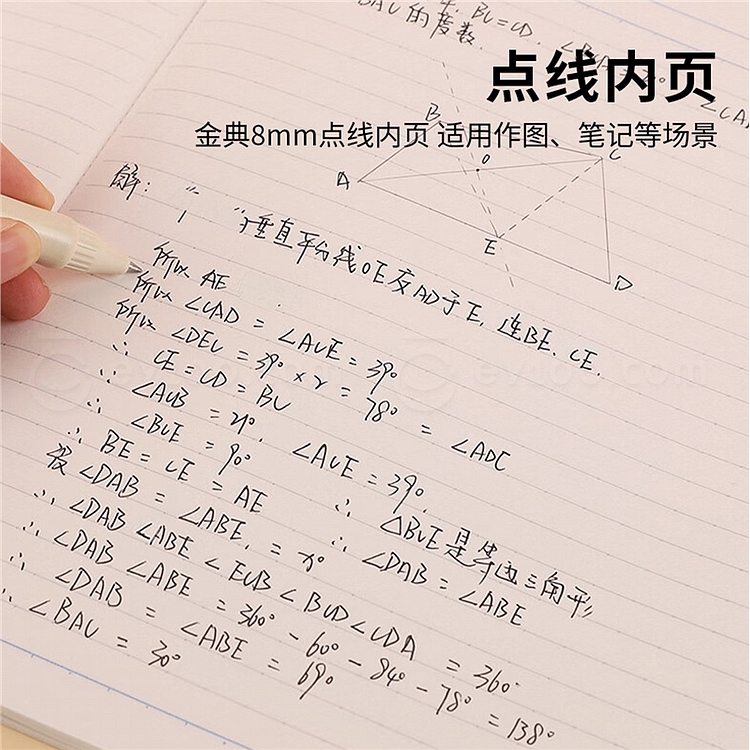 BAC的度数.
点线内页
金典8mm点线内页 适用作图、笔记等场景
A
B
C
D
E
O
解:
垂直平分线OE交AD于E, 连BE, CE.
所以 AE
所以 ∠CAD = ∠ACE = 39°
所以 ∠DEC = 39° × 2 = 78° = ∠ADC
∴ CE = CD = BC
∴ ∠ACB = 21°, ∠ACE = 39°,
∴ ∠BCE = 90° ∴ △BCE是等边三角形
∴ BE = CE = AE ∴ ∠DAB = ∠ABE
设 ∠DAB = ∠ABE, = x°
∴ ∠DAB ∠ABE < ECB < BCD < CDA = 360°
∴ ∠DAB ∠ABE = 360° - 60° - 84° - 78° = 138°
∴ ∠DAB = ∠ABE = 69°
∴ ∠BAC = 30°